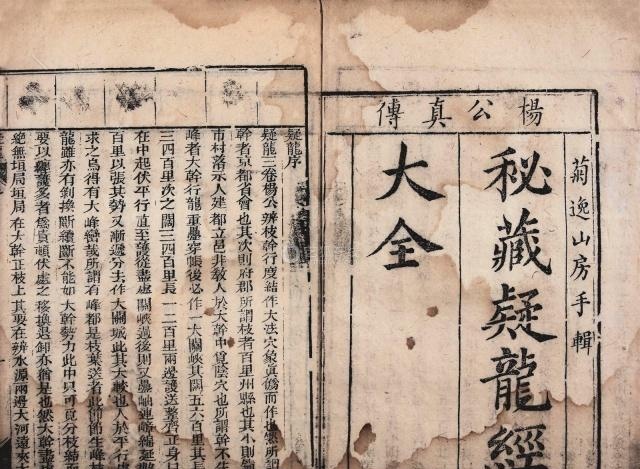 楊公真傳
菊逸山房手輯
秘藏疑龍經
大全
疑龍序
疑龍三卷楊公辨枝幹行度結作大法穴象真僞而作也然所謂
幹者京都省會也其次則府郡所謂枝者百里州縣也其小則鎮
市村落示人建都立邑非教人於大幹中覓陰穴也所謂幹不生
峰者大幹行龍重疊穿帳後必作一大關峽其闊五六百里其長
三四百里次之闊三四百里長一二百里兩邊護送整齊正身只
在中起伏平行直至峽從盡處關峽過後則又疊峰連綿延數
百里以張其勢又漸過分去作大關城此其大峽也人於平行處
求之烏得有大峰巒哉所謂有峰都是枝葉送者此節節生峰枝
龍雖亦有剝換斷續斷不能如大幹勢力此中只可覓分枝結
要以纏護多者為貴頓伏處之移換退卸亦猶是也然大幹盡
絶無垣局垣局在於幹正枝上其要在辨水源兩邊大河遠來